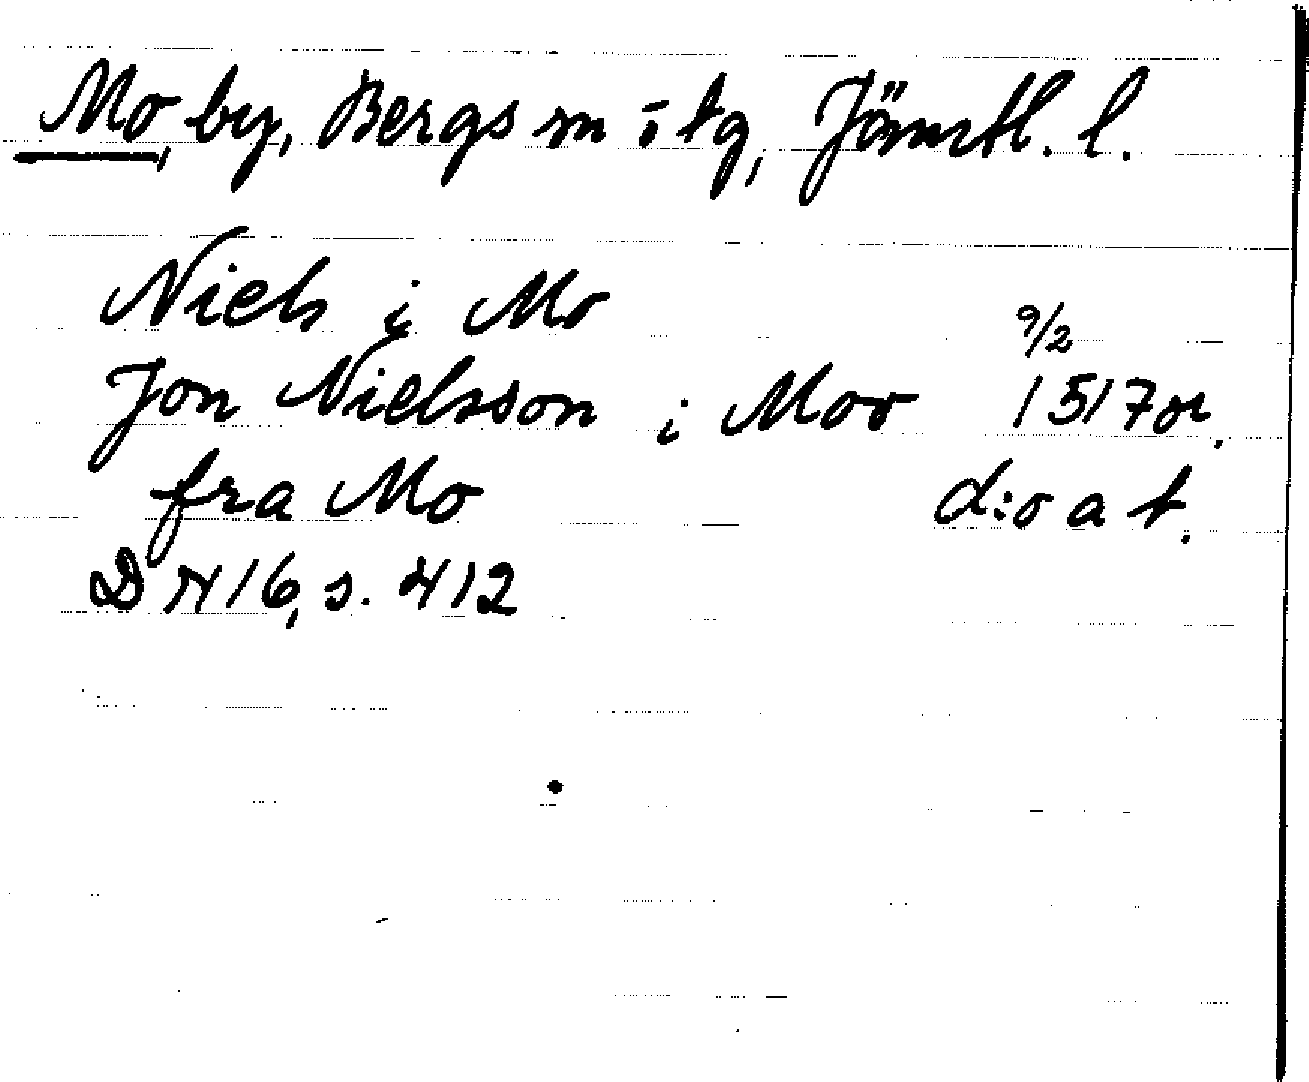 Mo, by, Bergs sn o tg, Jämtl. l.
Niels i Mo 9/2
Jon Nielsson i Moo 1517 or.
fra Mo d:o at.
DN 16, s. 412